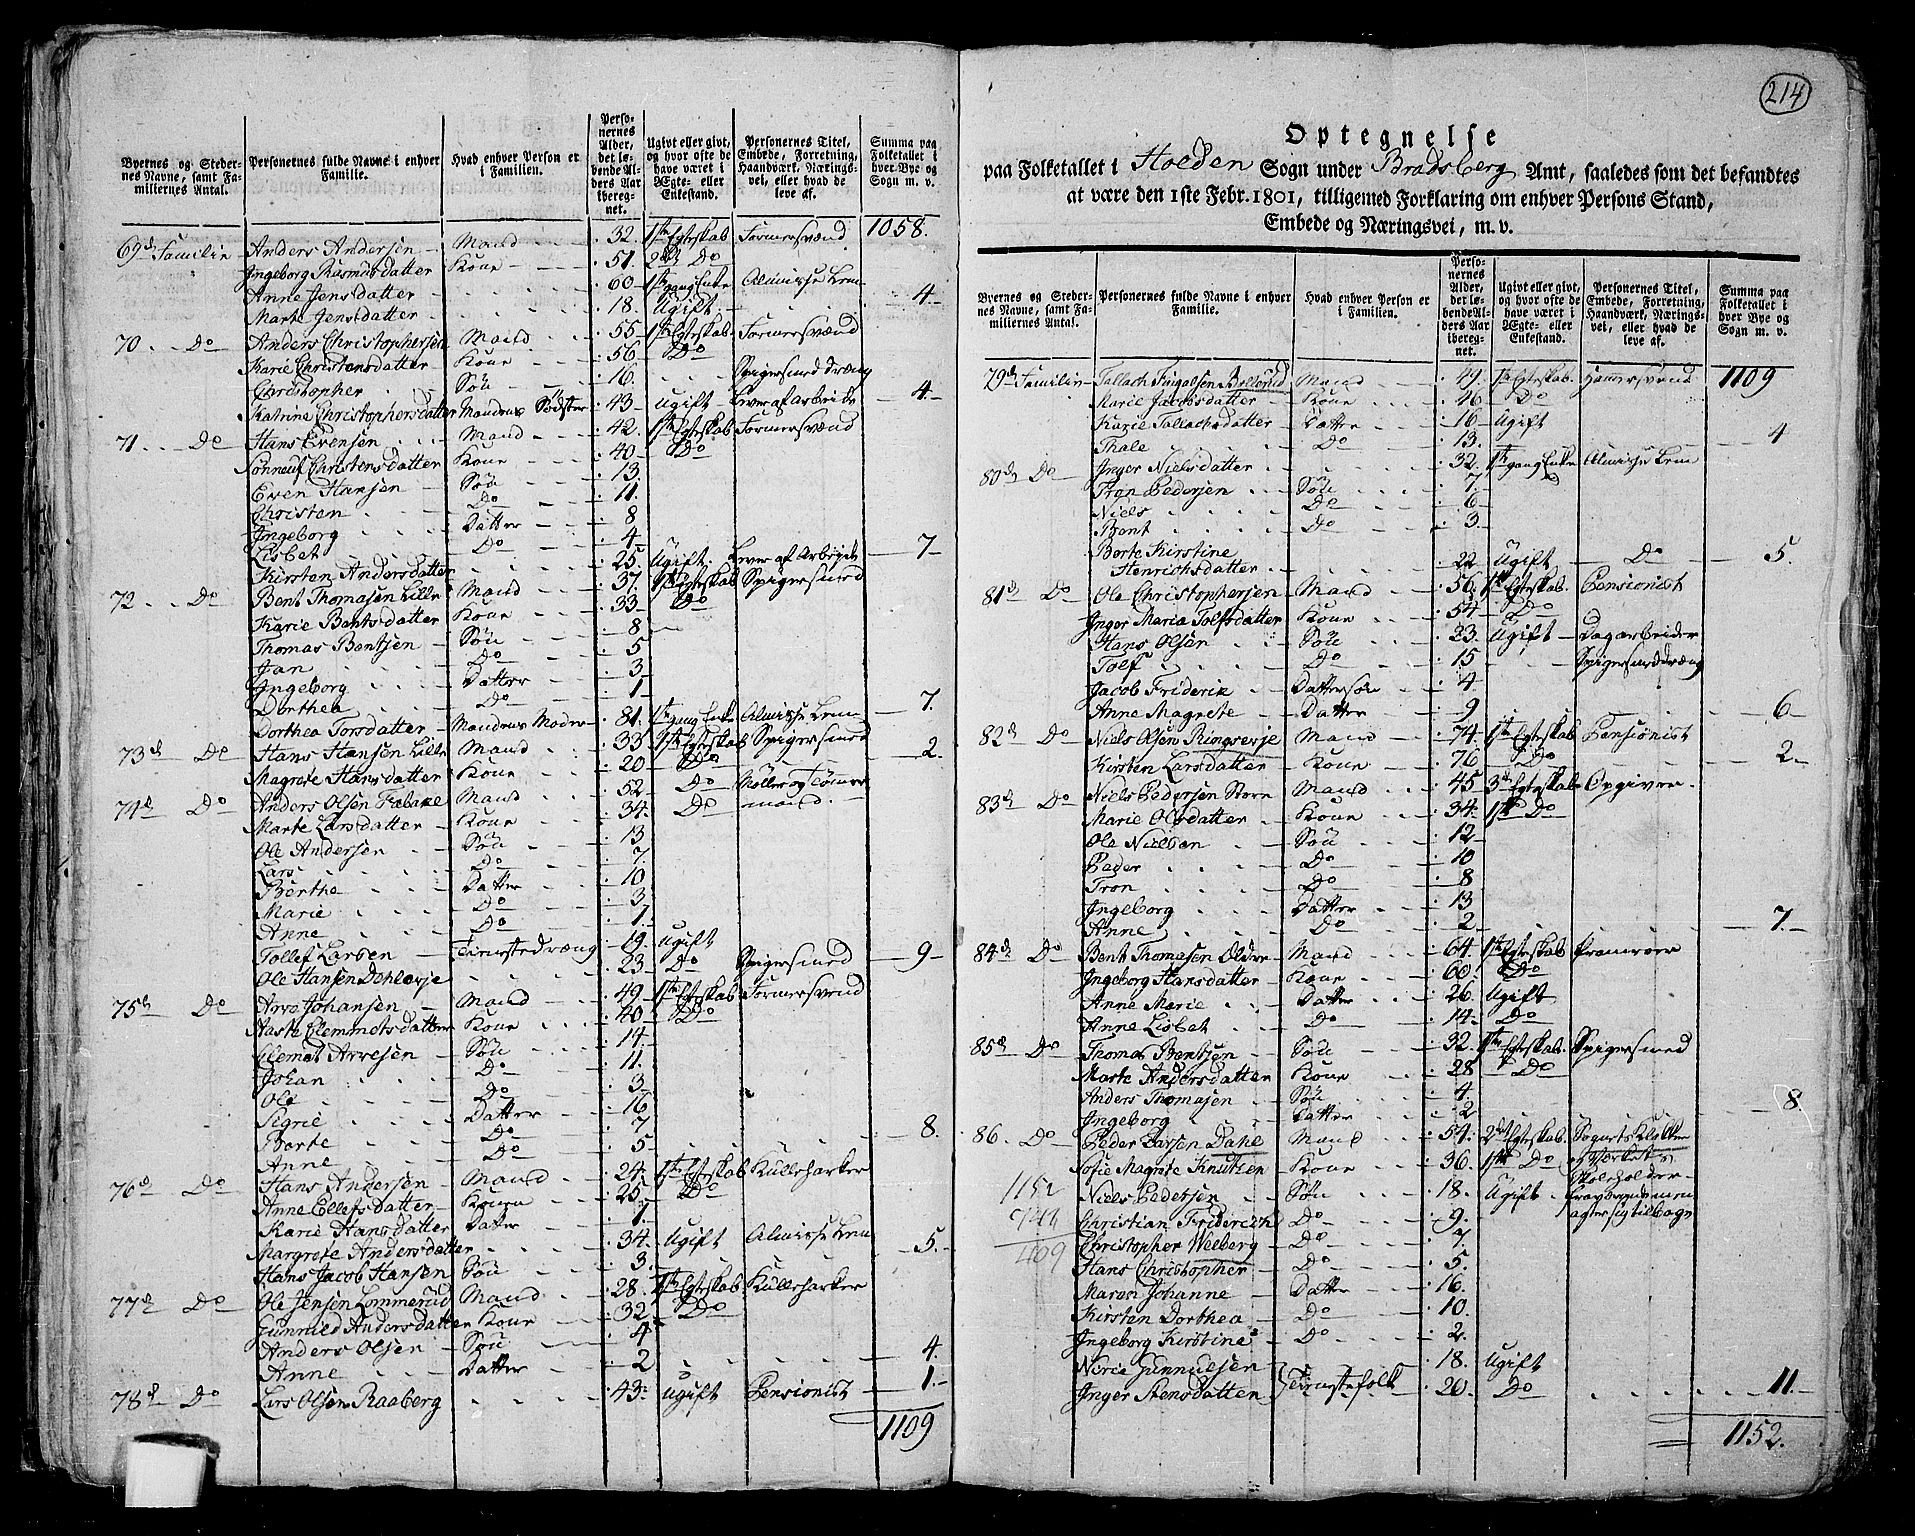 Byernes og Steder-
nes Navne, samt Fa-
miliernes Antal.
Personernes fulde Navne i enhver
Familie.
Hvad enhver Person er
i Familien.
Perso-
nernes
Alder,
det le-
vende Al-
ders Aar
iberegn-
net.
Ugivt eller givt,
og hvor ofte de
have været i
Ægte- eller
Enkestand.
Personernes Titel,
Embede, Forretning,
Haandværk, Nærings-
vei, eller hvad de
leve af.
Summa paa
Folketallet i
hver Bye og
Sogn m. v.
1058.
69de Familie Anders Andersen Mand 32. 1ste Egteskab Formersvend
Ingeborg Rasmusdatter Kone 51. 2det Do
Anne Jensdatter 60 1ste gang Enke Almisse Lem
Marte Jensdatter 18. Ugift 4.
70 Do Anders Christophersen Mand 55 1ste Egteskab Formersvend
Karie Christensdatter Kone 56 Do
Christopher Søn 16. Spigersmed dreng
Katrine Christophersdatter Mandens Södster 43 Ugift Lever af arbeide 4.
71 Do Hans Evensen Mand 42. 1ste Egteskab Formersvend
Christensdatter Kone 40 Do
Even Hansen Søn 13
Christen Do 11.
Ingeborg Datter 8
Lisbet Do 4
Kirsten Andersdatter 25 Ugift Lever af Arbeide 7
72 Do Bent Thomasen Lille Mand 37. 1ste Egteskab Spigersmed
Karie Bentsdatter Kone 33 Do
Thomas Bentsen Søn 8
Jan Do 5
Ingeborg Datter 3
Dorthea Do 1
Dorthea Torsdatter Mandens Moder 81. 1ste gang Enke Almisse Lem 7.
73de Do Hans Hansen Lille Mand 33 1ste Egteskab Spigersmed
Magrete Hansdatter Kone 20 Do 2.
74de Do Anders Olsen Mand 52 Do Möller og Tömmer
Marte Larsdatter Kone 34. Do mand.
Ole Andersen Søn 13
Lars Do 7.
Berthe Datter 10
Marie Do 3
Anne Do 1.
Tollef Larsen Tienestedreng 19. Ugift
Ole Hansen 23 Do Spigersmed 9
75de Do Arve Johansen Mand 49 1ste Egteskab Formersvend
Aaste Clemmetsdatter Kone 40 Do
Clemet Arvesen Søn 14
Johan Do 11.
Ole Do 3
Sigrie Datter 16
Berte Do 7
Anne Do 5 8.
76de Do Hans Andersen Mand 24 1ste Egteskab Kulleharker
Anne Ellefsdatter Kone 25 Do
Karie Hansdatter Datter 1.
Margrete Andersdatter 34. Ugift Almisse Lem
Hans Jacob Hansen Søn 3. 5.
77de Do Ole Jensen Lommerud Mand 28. 1ste Egteskab Kulleharker
Gunnild Andersdatter Kone 32 Do
Anders Olsen Søn 4
Anne Datter 2 4.
78de Do Lars Olsen Raaberg 43 Ugift Pensionist 1.
1109
214
Optegnelse
paa Folketallet i Holden Sogn under Bradsberg Amt, saaledes som det befandtes
at være den 1ste Febr. 1801, tilligemed Forklaring om enhver Persons Stand,
Embede og Næringsvei, m. v.
Byernes og Steder-
nes Navne, samt Fa-
miliernes Antal.
Personernes fulde Navne i enhver
Familie.
Hvad enhver Person er
i Familien.
Perso-
nernes
Alder,
det le-
bende Al-
ders Aar
iberegn-
net.
Ugivt eller givt,
og hvor ofte de
have været i
Ægte- eller
Enkestand.
Personernes Titel,
Embede, Forretning,
Haandværk, Nærings-
vei, eller hvad de
leve af.
Summa paa
Folketallet i
hver Bye og
Sogn m. v.
79de Familie Tallach Mand 49. 1ste Egteskab Hamersvend 1109
Marie Jacobsdatter Kone 46 Do
Karie Tallachsdatter Datter 16 Ugift
Thale Do 13. 4
80de Do Inger Nielsdatter 32. 1ste gang Enke Almisse Lem
Tron Pedersen Søn 7.
Niels Do 6
Bent Do 3
Berte Kirstine
Henrichsdatter 22 Ugift Do 5.
81de Do Ole Christophersen Mand 56. 1ste Egteskab Pensionist
Inger Maria Tolfsdatter Kone 54 Do
Hans Olsen Søn 23. Ugift Dagarbeider
Tolf Do 15 Spigersmeddreng
Jacob Friderik Dattersøn 4
Anne Magrete Datter 9 6
82de Do Niels Olsen Ringserje Mand 74 1ste Egteskab Pensionist
Kirsten Larsdatter Kone 76 Do 2.
83de Do Niels Pedersen Mand 45 3de Egteskab Opgiver
Marie Olsdatter Kone 34. 1ste Do
Ole Nielsen Søn 12
Peder Do 10
Tron Do 8
Ingeborg Datter 13
Anne Do 2 7.
84de Do Bent Thomasen Eldre Mand 64 1ste Egteskab Pramroer
Ingeborg Hansdatter Kone 60 Do
Anne Marie Datter 26. Ugift
Anne Lisbet Do 14. Do
85de Do Thomas Bentsen Søn 32. 1ste Egteskab Spigersmed
Marte Andersdatter Kone 28 Do
Anders Thomasen Søn 4
Ingeborg Datter 2 8.
86 Do Peder Larsen Dahl Mand 54. 2det Egteskab
Sofie Magrete Knutzen Kone 36. 1ste Do Værkets
Skoleholder
Niels Pedersen Søn 18. Ugift
Christian Friderich Do 9.
Christopher Weeberg Do 7.
Hans Christopher Do 5.
Maren Johanne Datter 16.
Kirsten Dorthea Do 10.
Ingeborg Kirstine Do 2.
1152
1109
Gunnulsen Tienestefolk 18. Ugift
Inger Stensdatter 20. Do 11.
1152.